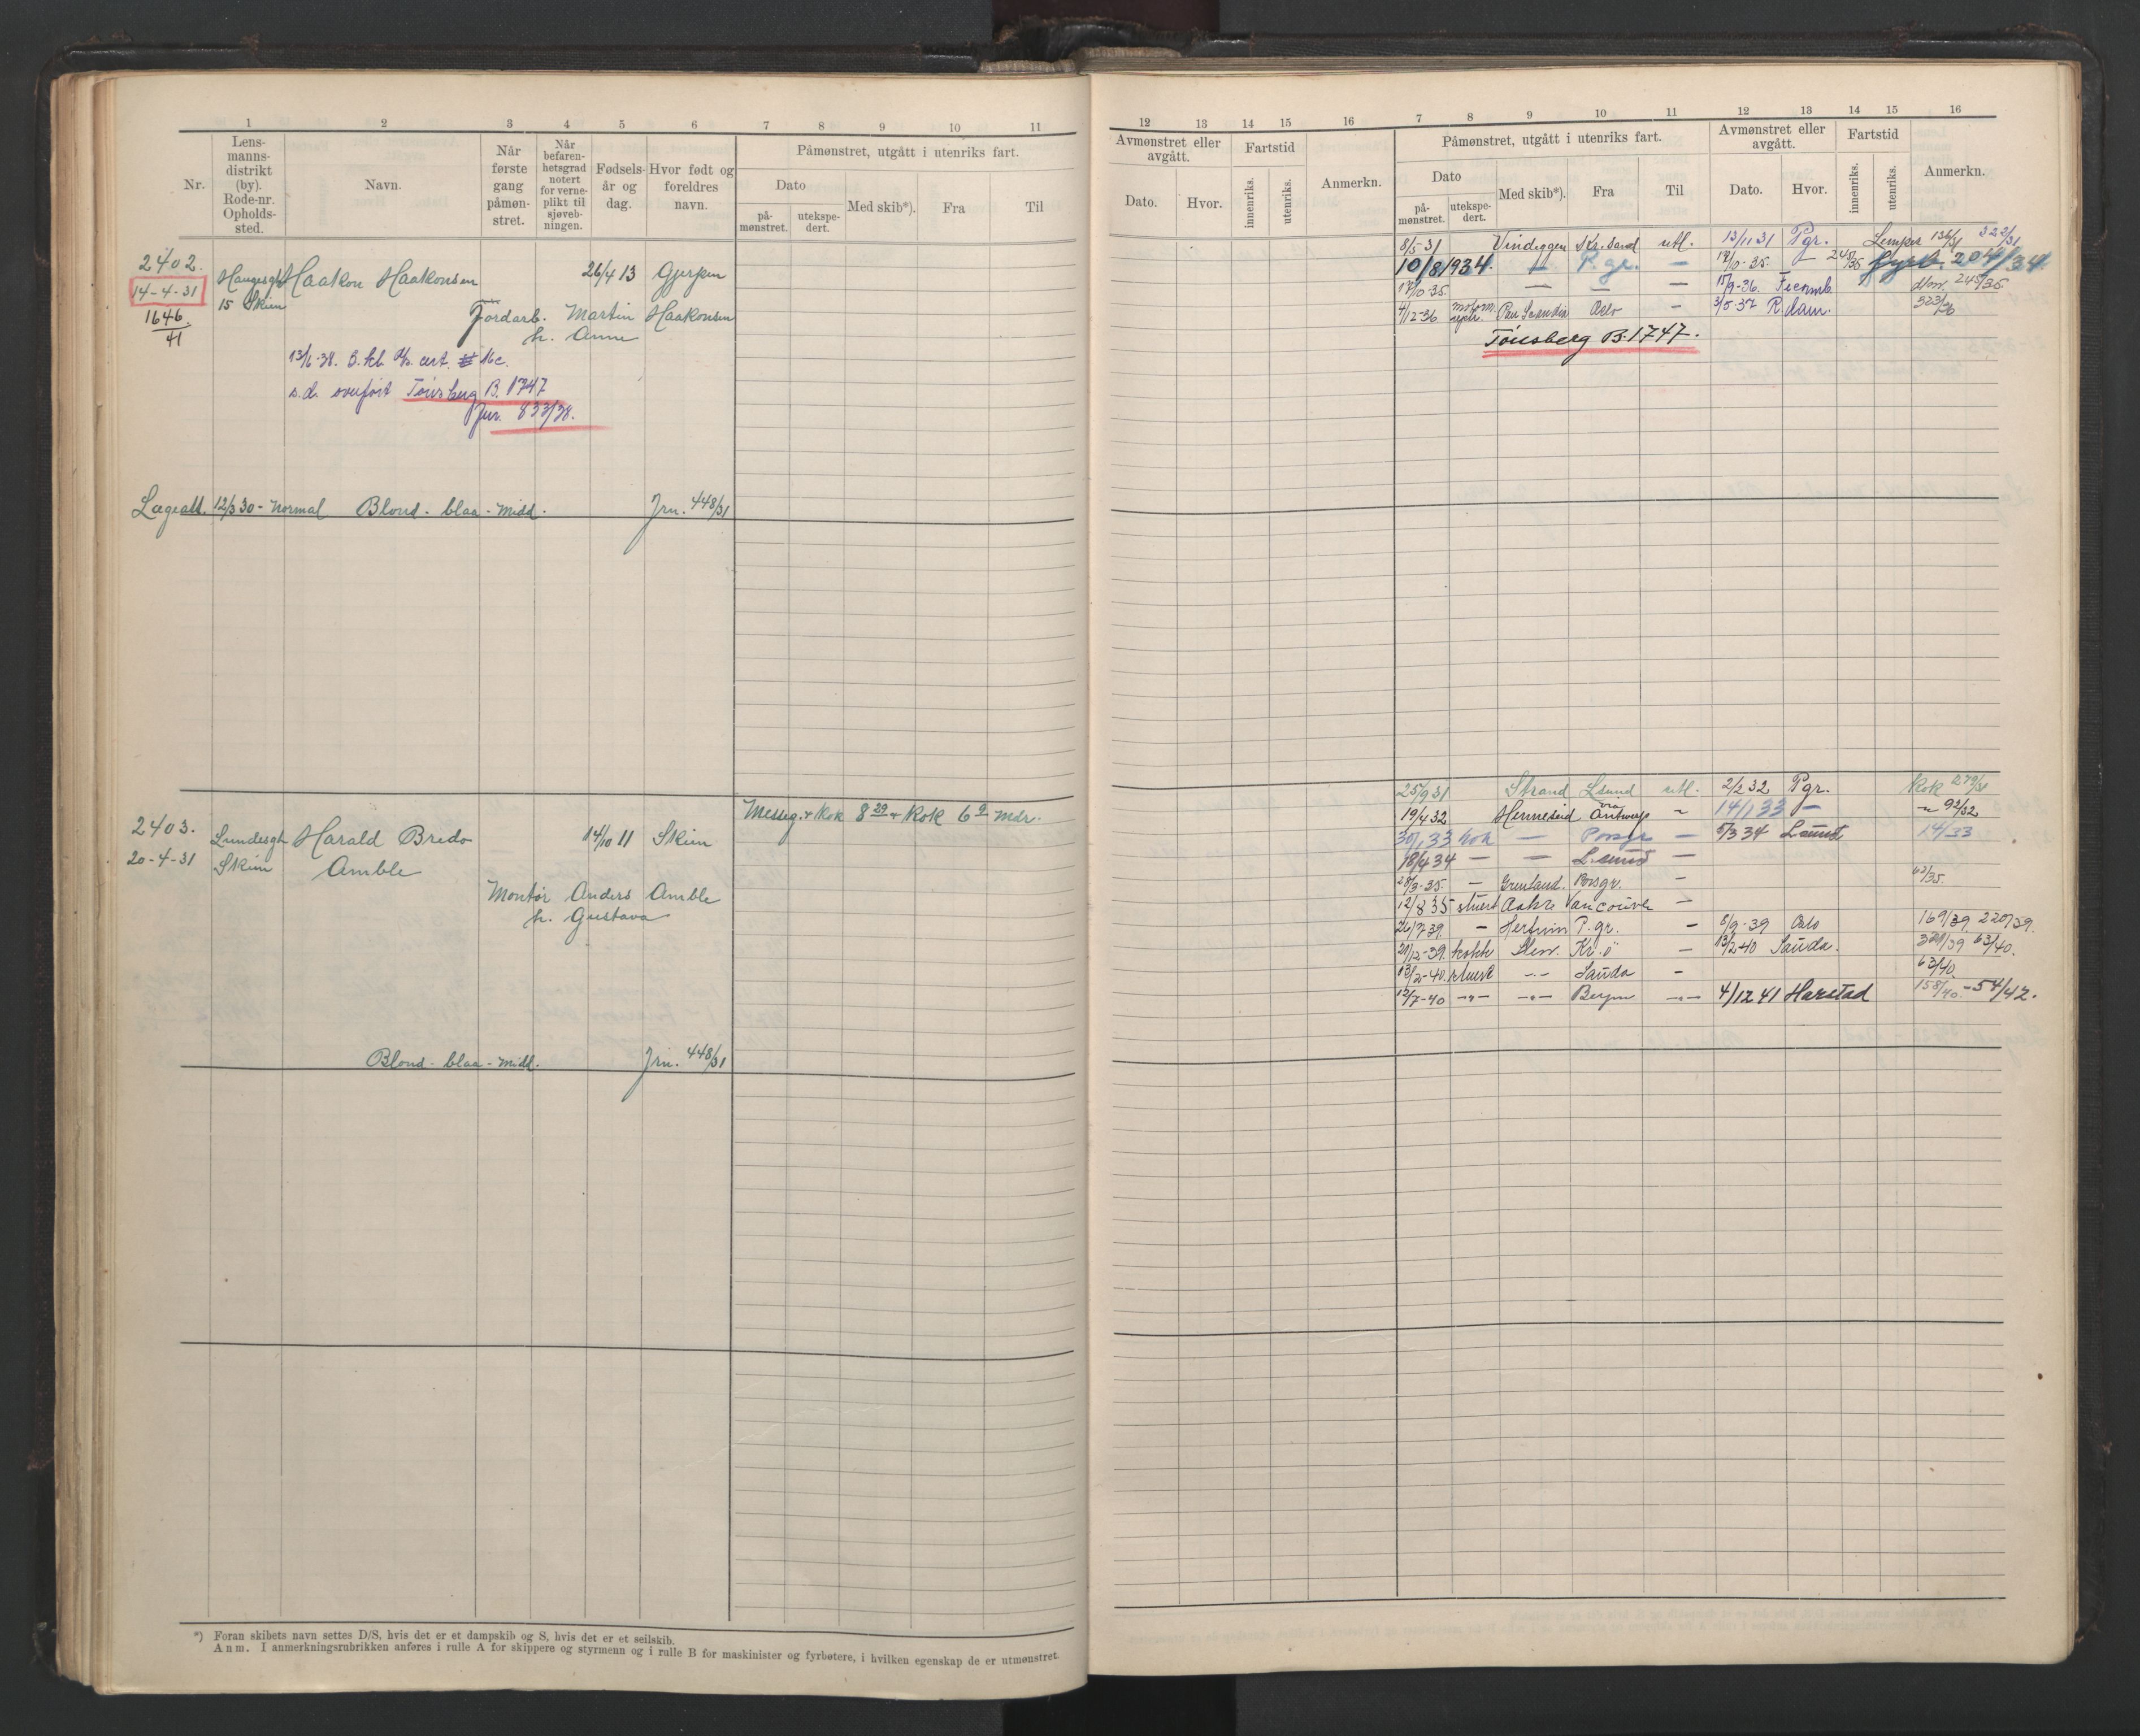 1 2 3 4 5 6 7 8 9 10 11
Nr.
Lens-
manns-
distrikt
(by).
Rode-nr.
Opholds-
sted.
Navn.
Når
første
gang
påmøn-
stret.
Når
befaren-
hetsgrad
notert
for verne-
plikt til
sjøveb-
ningen.
Fødsels-
år og
dag.
Hvor født og
foreldres
navn.
Påmønstret, utgått i utenriks fart.
Dato
på-
mønstret.
utekspe-
dert.
Med skib*).
Fra
Til
2402.
14-4-31
1646
41
15 Skien
Haakon Haakonsen
26/4 13 Gjerpen
Jordarb. Martin Haakonsen
h. Anne
s.d. overført Tønsberg B. 1747
Jnr. 833/38.
Lægeatt. 12/3 30 - Normal Blond - blaa - midd. Jrn. 448/31
2403.
20-4-31
Skien
Harald Bredo
Amble
14/10 11 Skien
Montør Anders Amble
h. Gustava
Messeg. + Kok 8 29 + Kok 6 9 mdr.
Blond - blaa - midd. Jrn. 448/31
*) Foran skibets navn settes D/S, hvis det er et dampskib og S, hvis det er et seilskib.
Anm. I anmerkningsrubrikken anføres i rulle A for skippere og styrmenn og i rulle B for maskinister og fyrbøtere, i hvilken egenskap de er utmønstret.
12 13 14 15 16 7 8 9 10 11 12 13 14 15 16
Avmønstret eller
avgått.
Dato.
Hvor.
Fartstid
innenriks.
utenriks.
Anmerkn.
Påmønstret, utgått i utenriks fart.
Dato
på-
mønstret.
utekspe-
dert.
Med skib*).
Fra
Til
Avmønstret eller
avgått.
Dato.
Hvor.
Fartstid
innenriks.
utenriks.
Anmerkn.
8/5 31 Vindeggen Kr.sand utl. 13/11 31 Pgr. Lemper 136/31 322/31
10/8 1934 — P.gr. — 17/10-35. — 245/35 204/34
17/10-35 — — — 15/9-36. 245/35
4/12-36 Pan Scandia Oslo — 3/5-37 R.dam. 323/36
Tønsberg B. 1747.
25/9 31 Strand Lsund utl. 2/2 32 Pgr. Kok 279/31
19/4 32 Henneseid via Antwerp — 14/1 33 — 92/32
30/1 33 kok — Porsgr — 5/3 34 L.sund 14/33
18/4 34 — — L.sund —
28/3-35. — Grenland. Porsgr. — 62/35.
12/8 35 stuert Aakre Vancouver —
26/7 39. — P.gr. — 8/9-39 Oslo 169/39 220/39.
21/12-39. kokk Slem. Kr.ø — 13/2-40 Sauda. 63/40.
13/2-40. stuert -"- Sauda — 63/40.
12/7-40 -"- -"- Bergen -"- 4/12 41 Harstad 158/40. - 54/42.